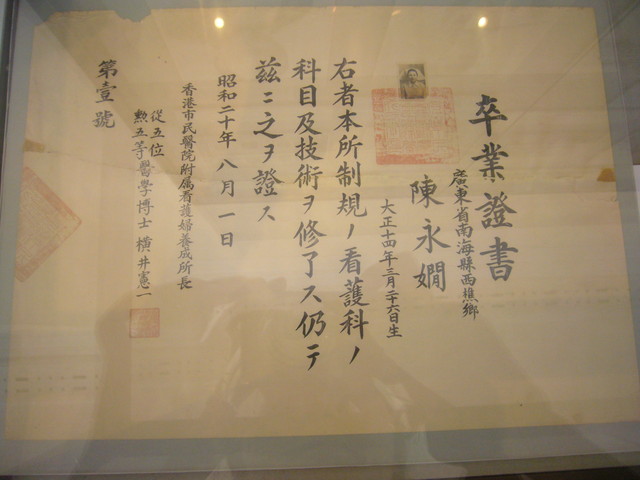 卒業證書
廣東省南海縣西樵鄉
陳永嫺
大正十四年三月二十六日生
右者本所制規ノ看護科ノ
科目及技術ヲ修了ス仍テ
茲ニ之ヲ證ス
昭和二十年八月一日
香港市民醫院附属看護婦養成所長
從五位
勲五等醫學博士橫井憲一
第壹號